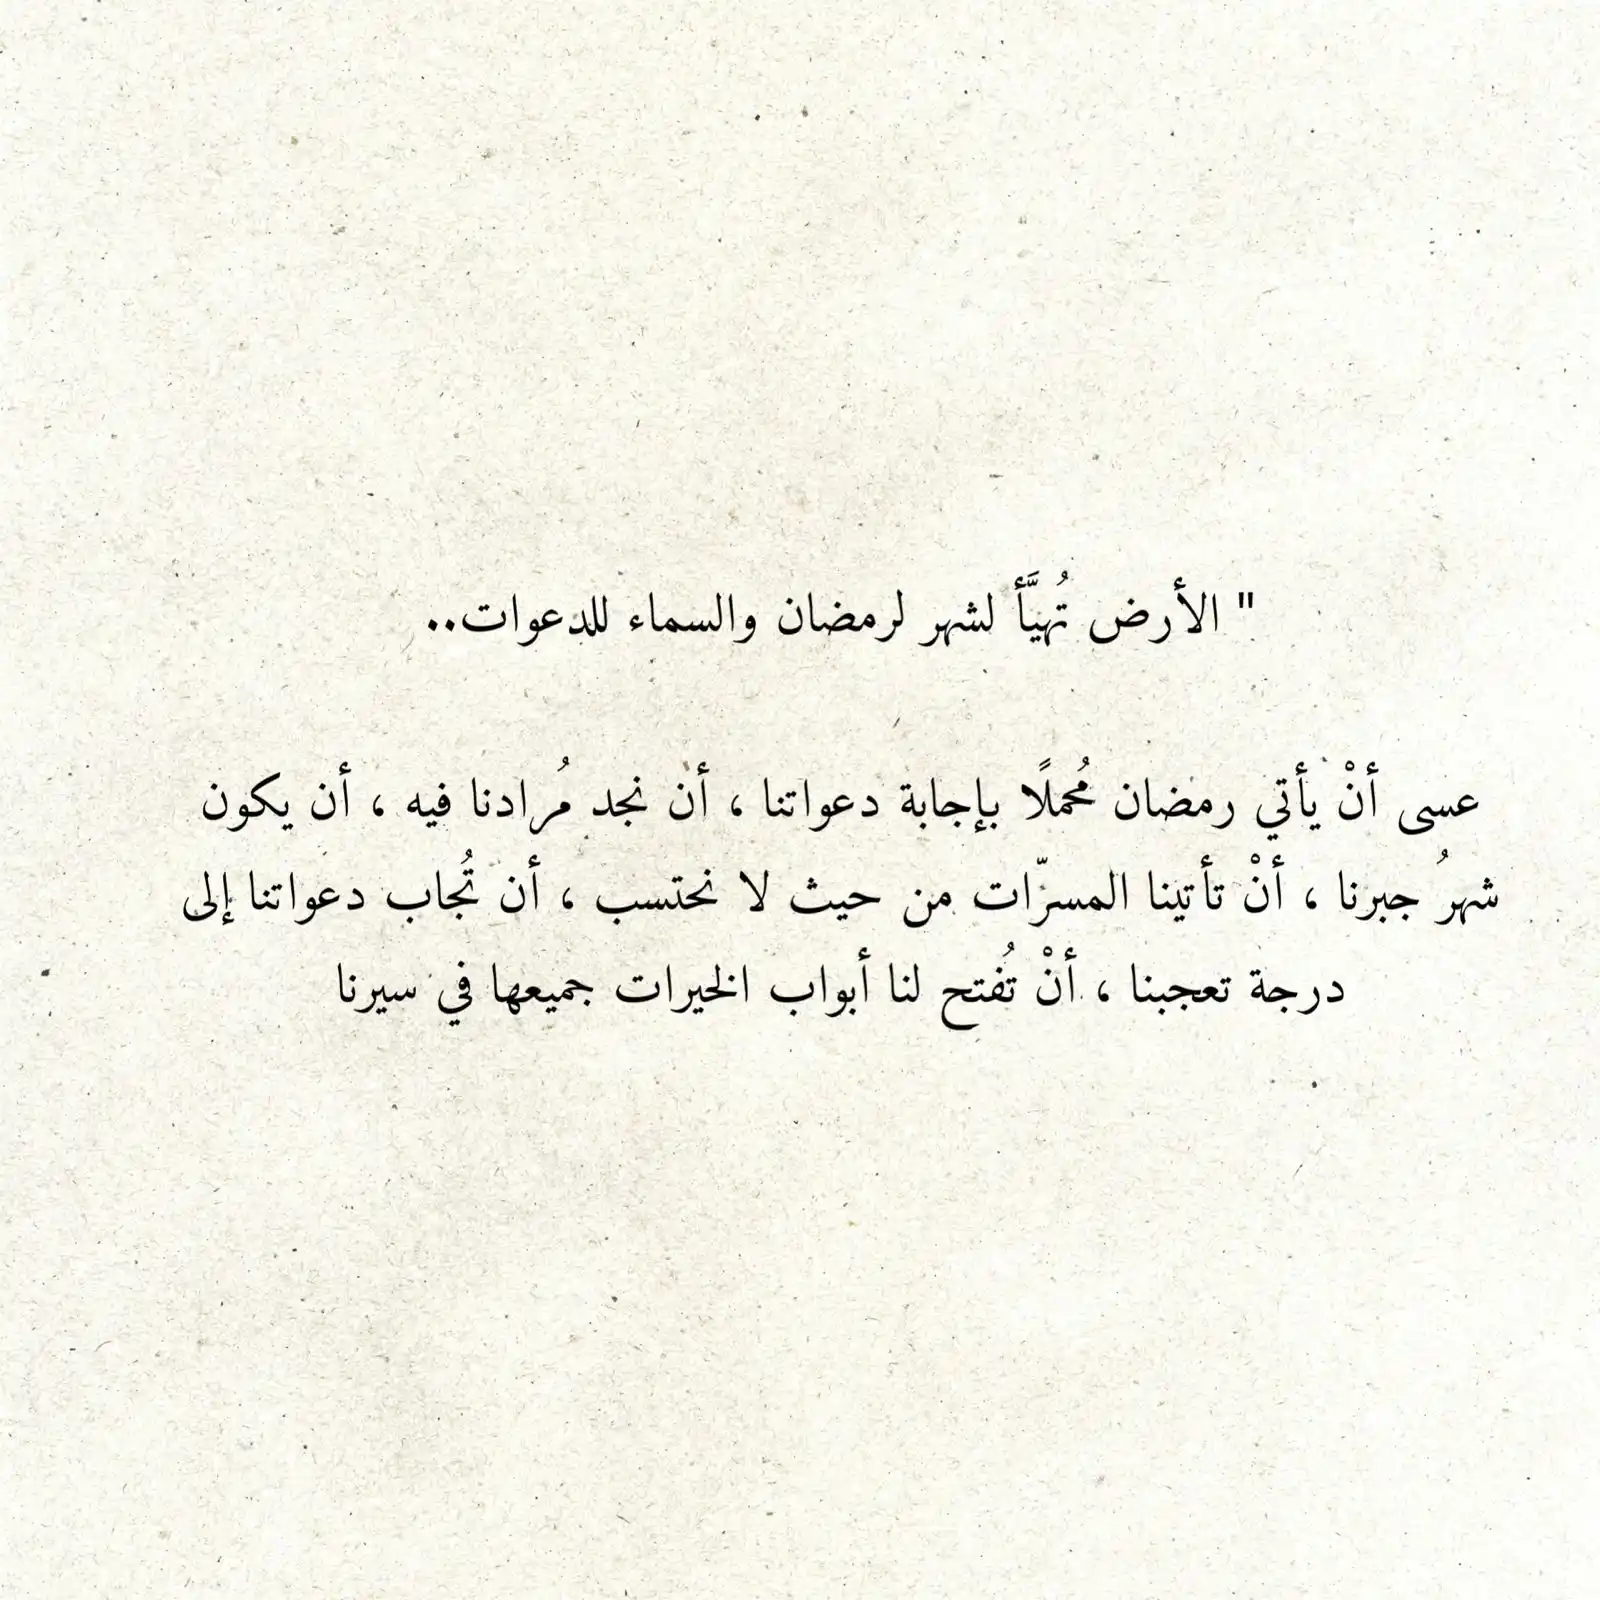 " الأرض تُهيَّأ لشهر لرمضان والسماء للدعوات..
عسى أنْ يأتي رمضان مُحملًا بإجابة دعواتنا ، أن نجد مُرادنا فيه ، أن يكون
شهرُ جبرنا ، أنْ تأتينا المسرّات من حيث لا نحتسب ، أن تُجاب دعواتنا إلى
درجة تعجبنا ، أنْ تُفتح لنا أبواب الخيرات جميعها في سيرنا